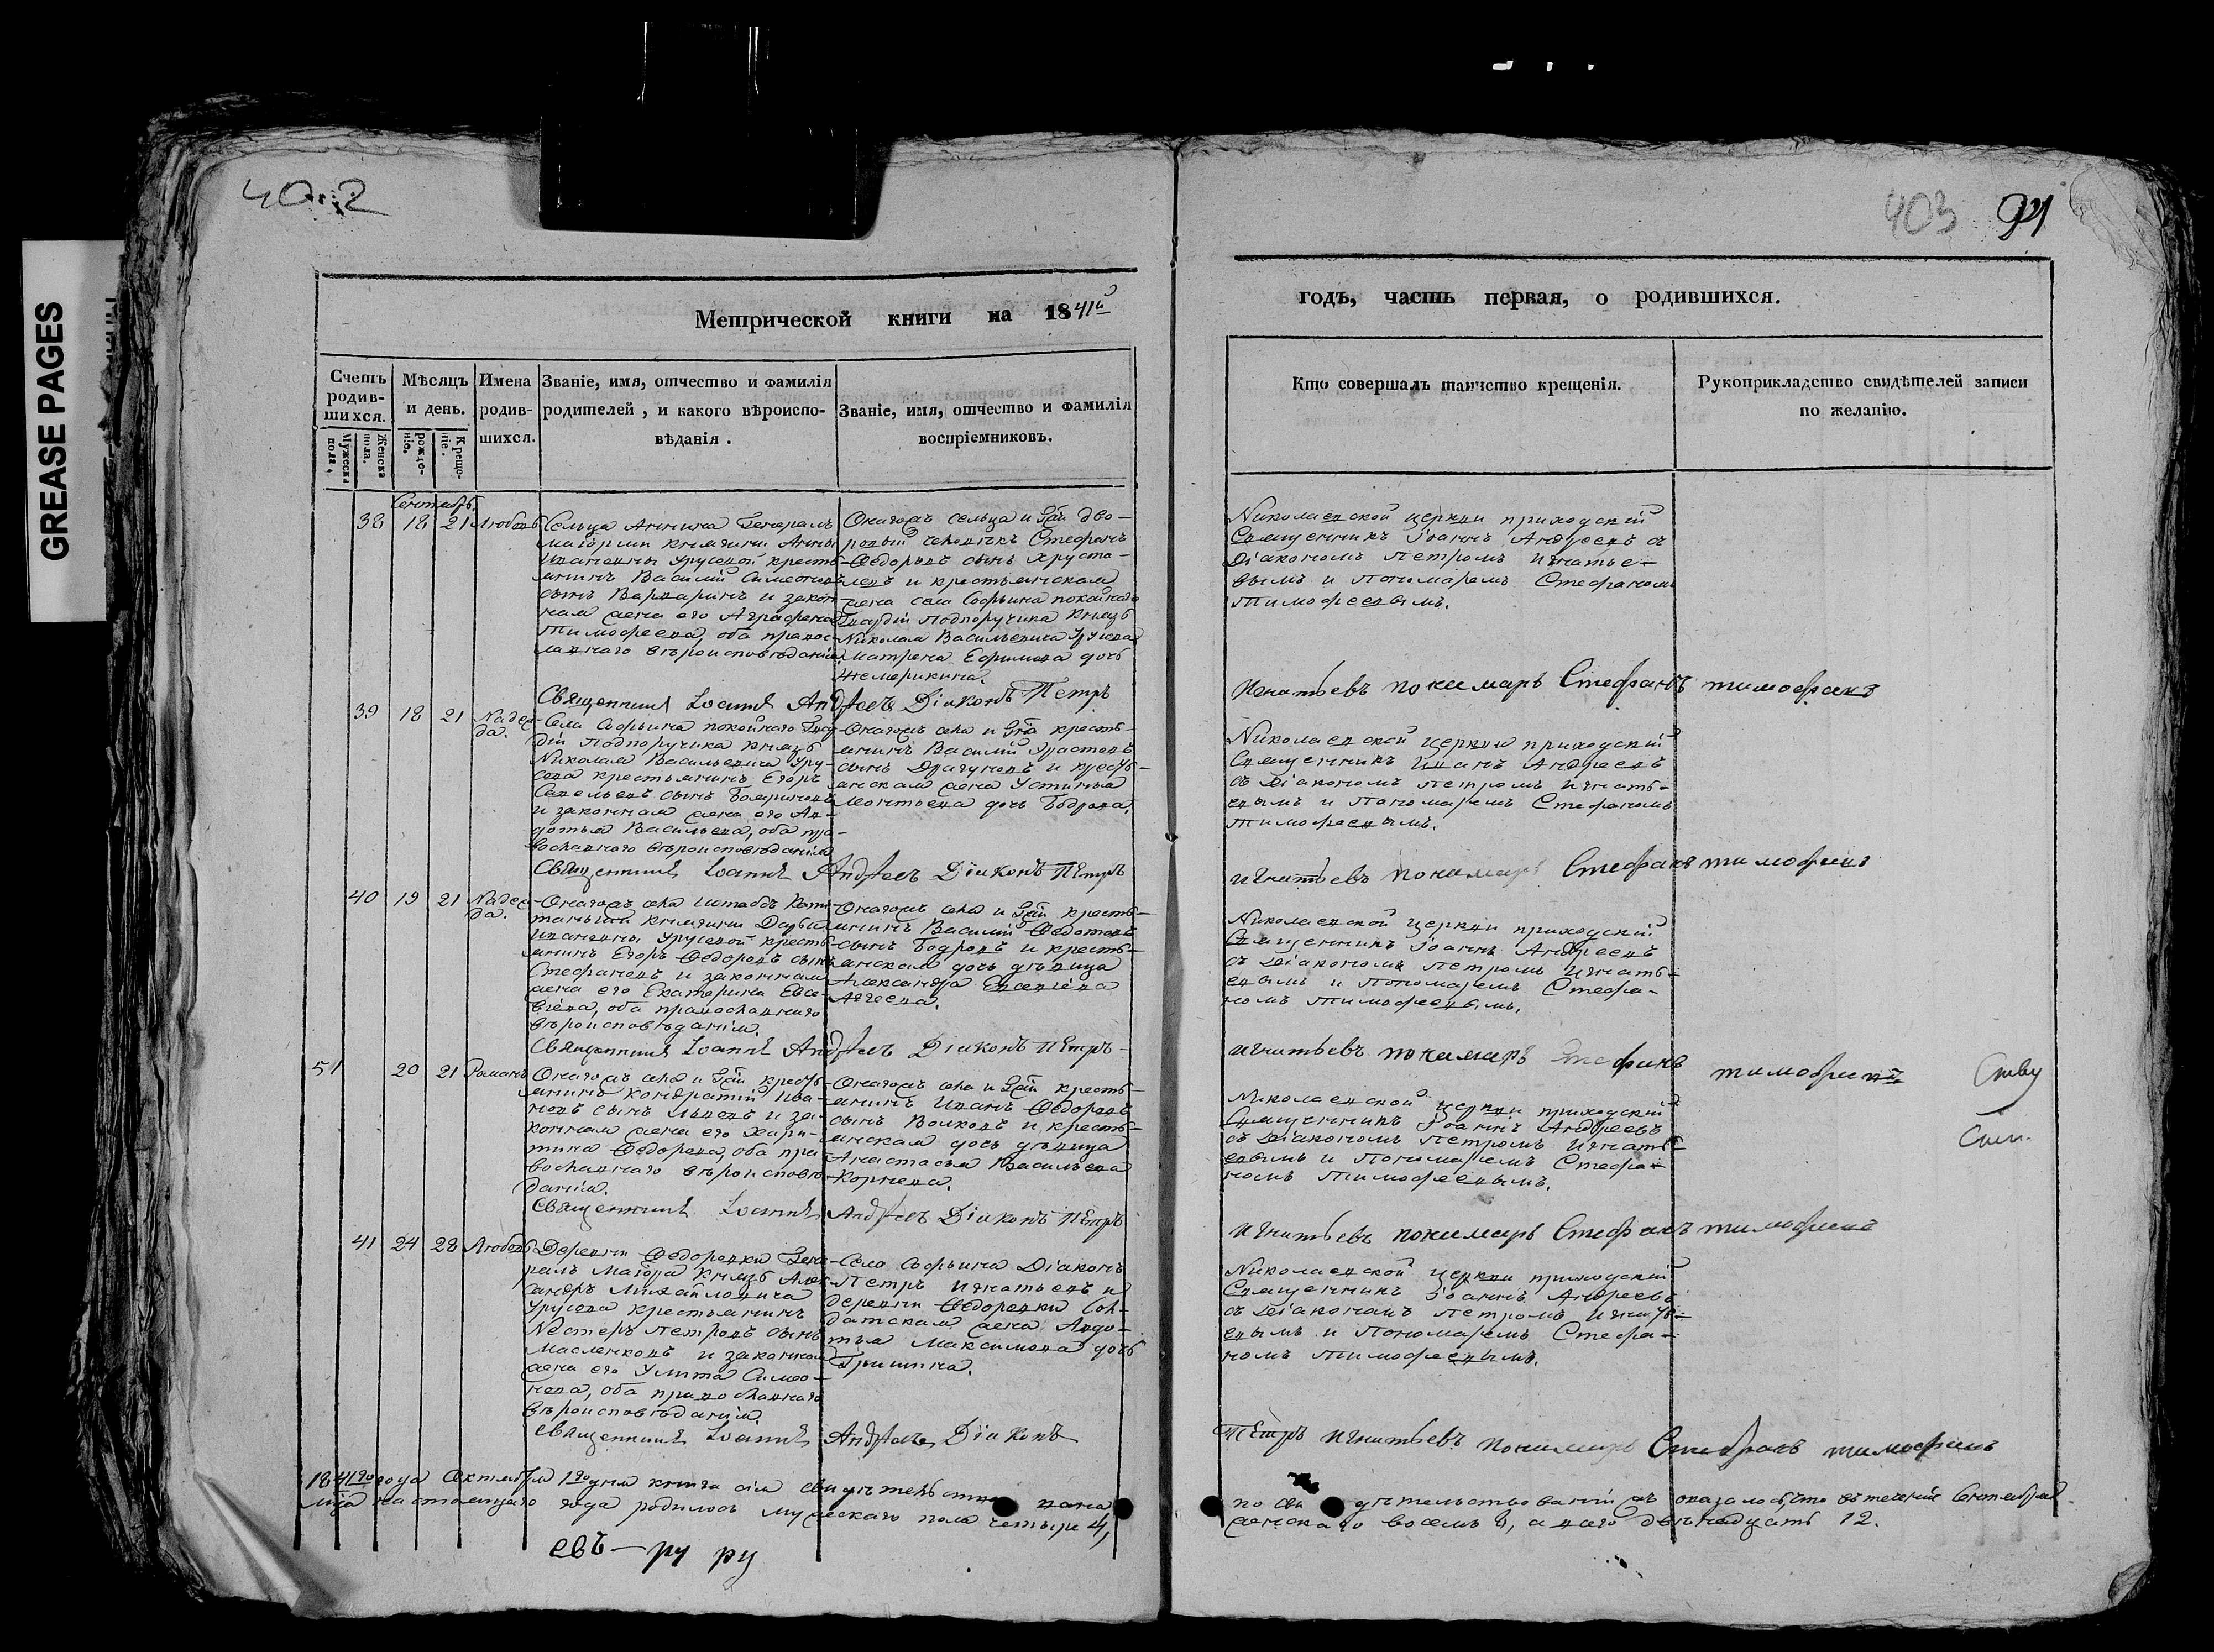 402
403
GREASE PAGES
Метрической книги на 1841й
годъ, часть первая, о родившихся.
Счетъ родив-
шихся.
Мужеска пола,
Женска пола.
Мѣсяцъ
и день.
рожде-
ніе.
Креще-
ніе.
Имена
родив-
шихся.
Званіе, имя, отчество и фамилія
родителей, и какого вѣроиспо-
вѣданія.
Званіе, имя, отчество и фамилія
воспріемниковъ.
Кто совершалъ таинство крещенія.
Рукоприкладство свидѣтелей записи
по желанію.
Сентябрь
38 18 21 Любовь
Сельца Аннина Генералъ
Маіорши княгини Анны
Ивановны Урусовой кресть-
янинъ Василій Симеоновъ
сынъ Варваринъ и закон-
ная жена его Аграфена
Тимофеева, оба правос-
лавнаго вѣроисповѣданія.
Онагожъ сельца и Гжи дво-
ровый человѣкъ Стефанъ
Ѳедоровъ сынъ Хруста-
левъ и крестьянская
жена села Софьина покойнаго
Гвардіи Подпоручика Князь
Николая Васильевича Урусова
Матрена Ефимова дочь
Жемарикина.
Николаевской церкви приходскій
Священникъ Іоаннъ Андреевъ съ
Діакономъ Петромъ Игнатье-
вымъ и Пономаремъ Стефаномъ
Тимофеевымъ.
Священникъ Іоаннъ Андреевъ Діаконъ Петръ
Игнатьевъ пономарь Стефанъ тимофеевъ
39 18 21 Надеж-
да.
Села Софьина покойнаго Гвар-
діи Подпоручика Князь
Николая Васильевича Уру-
сова крестьянинъ Егоръ
Савельевъ сынъ Бояриновъ
и законная жена его Ав-
дотья Васильева, оба пра-
вославнаго вѣроисповѣданія
Онагожъ села и Гна кресть-
янинъ Василій Ерастовъ
сынъ Драгуновъ и кресть-
янская жена Устинья
Леонтьева дочь Бодрова.
Николаевской церкви приходскій
Священникъ Иванъ Андреевъ
съ Діакономъ Петромъ Игнать-
евымъ и Пономаремъ Стефаномъ
Тимофеевымъ.
Священникъ Іоаннъ Андреевъ Діаконъ Петръ
Игнатьевъ пономарь Стефанъ тимофеевъ
40 19 21 Надеж-
да.
Онагожъ села Штабсъ Капи-
танши княгини Дарьи
Ивановны Урусовой кресть-
янинъ Егоръ Ѳедоровъ сынъ
Стефановъ и законная
жена его Екатерина Евсе-
віева, оба православнаго
вѣроисповѣданія.
Онагожъ села и Гжи кресть-
янинъ Василій Ѳедотовъ
сынъ Бодровъ и кресть-
янская дочь дѣвица
Александра Евсевіева
Авдеева.
Николаевской церкви приходскій
Священникъ Іоаннъ Андреевъ
съ Діакономъ Петромъ Игнать-
евымъ и Пономаремъ Стефа-
номъ Тимофеевымъ.
Священникъ Іоаннъ Андреевъ Діаконъ Петръ
Игнатьевъ пономарь Стефанъ тимофеевъ
51 20 21 Романъ
Онагожъ села и Гжи кресть-
янинъ Кондратій Ива-
новъ сынъ Львовъ и за-
конная жена его Хари-
тина Ѳедорова, оба пра-
вославнаго вѣроисповѣ-
данія.
Онагожъ села и Гжи кресть-
янинъ Иванъ Ѳедоровъ
сынъ Волковъ и кресть-
янская дочь дѣвица
Анастасья Васильева
Корнева.
Николаевской церкви приходскій
Священникъ Іоаннъ Андреевъ
съ Діакономъ Петромъ Игнать-
евымъ и Пономаремъ Стефа-
номъ Тимофеевымъ.
Священникъ Іоаннъ Андреевъ Діаконъ Петръ
Игнатьевъ пономарь Стефанъ тимофеевъ
41 24 28 Любовь
Деревни Ѳедоровки Гене-
ралъ Маіора Князь Алек-
сандръ Михайловича
Урусова крестьянинъ
Нестеръ Петровъ сынъ
Масленковъ и законная
жена его Улита Симео-
нова, оба православнаго
вѣроисповѣданія
Села Софьина Діаконъ
Петръ Игнатьевъ и
деревни Ѳедоровки Сол-
датская жена Авдо-
тья Максимова дочь
Гришина.
Николаевской церкви приходскій
Священникъ Іоаннъ Андреевъ
съ Діакономъ Петромъ Игнать-
евымъ и Пономаремъ Стефа-
номъ Тимофеевымъ.
Священникъ Іоаннъ Андреевъ Діаконъ
Петръ Игнатьевъ пономарь Стефанъ тимофеевъ
1841го года Октября 1го дня книга сія свидѣтельствована
по свидѣтельствованіи жъ оказалось, что въ теченіи Сентября
мца настоящаго года родилось мужескаго пола четыре 4,
женскаго восемь 8, а всего двѣнадцать 12.
евъ — ру ру